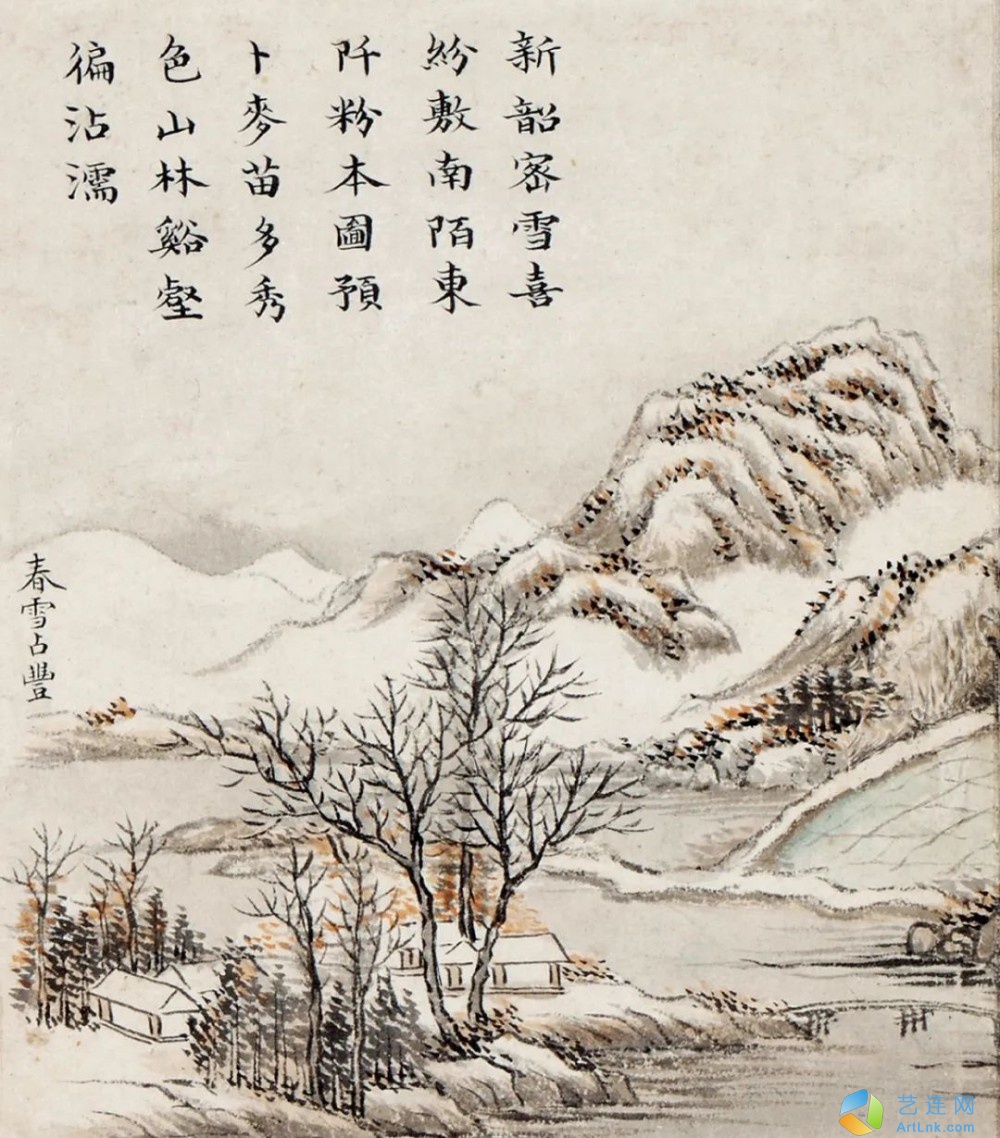 新韶密雪喜
紛敷南陌東
阡粉本圖預
卜麥苗多秀
色山林谿壑
徧沾濡
春雪占豐
艺连网
ArtLnk.com